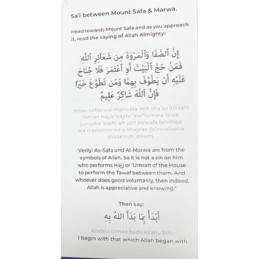 Sa'i between Mount Safa & Marwa.
Head towards Mount Safa and as you approach
it, read the saying of Allah Almighty:
إِنَّ ٱلصَّفَا وَٱلْمَرْوَةَ مِن شَعَآئِرِ ٱللَّهِ
فَمَنْ حَجَّ ٱلْبَيْتَ أَوِ ٱعْتَمَرَ فَلَا جُنَاحَ
عَلَيْهِ أَن يَطَّوَّفَ بِهِمَا وَمَن تَطَوَّعَ خَيْرًا
فَإِنَّ ٱللَّهَ شَاكِرٌ عَلِيمٌ
Verily! As-Safa and Al-Marwa are from the
symbols of Allah. So it is not a sin on him
who performs Hajj or 'Umrah of the House
to perform the Tawaf between them. And
whoever does good voluntarily, then indeed,
Allah is appreciative and knowing."
Then say:
أَبْدَأُ بِمَا بَدَأَ اللهُ بِهِ
I begin with that which Allah began with